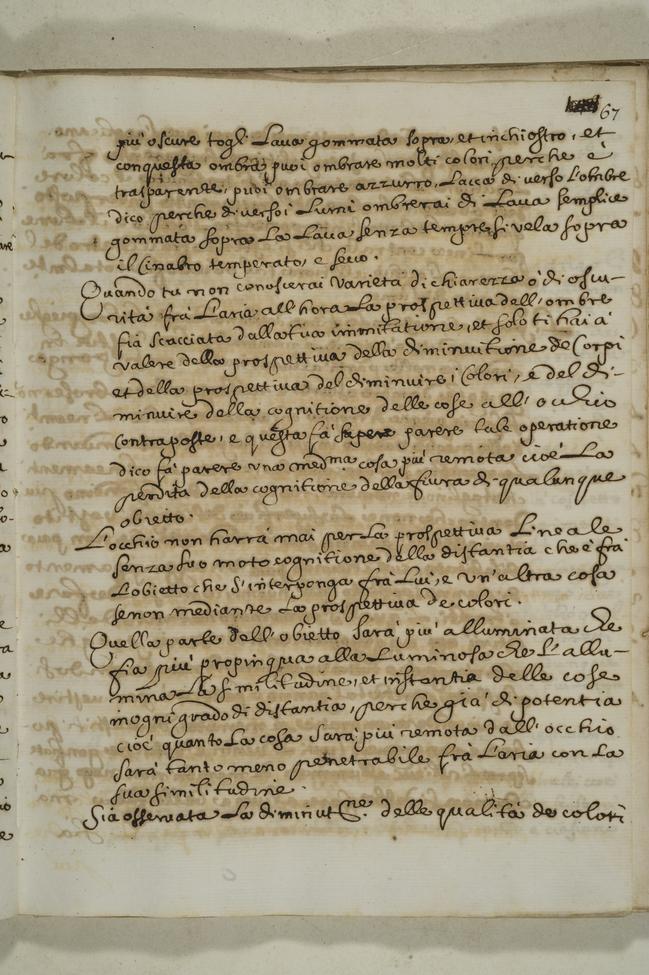 67
più oscure togli Laua gommata sopra, et inchiostro, et
con questa ombra puoi ombrare molti colori, perche è
trasparente, puoi ombrare azzurro, Lacca di uerso L'ombre
dico perche di uerso i Lumi ombrerai di Laua semplice
gommata sopra La Laua senza tempre, si uela sopra
il Cinabro temperato, e seuo.
Quando tu non conoscerai uarietà di chiarezza ò di oscu-
rità fra L'aria all'hora La prospettiua dell'ombre
fia scacciata dalla tua immitatione, et solo ti hai à
ualere della prospettiua della diminuitione de Corpi
et della prospettiua del diminuire i Colori, e del di-
minuire della cognitione delle cose all'occhio
contraposte, e questa fà parere tale operatione
dico fà parere una med.ma cosa più remota cioè La
perdita della cognitione della fiura di qualunque
obietto.
L'occhio non harrà mai per La prospettiua Lineale
senza suo moto cognitione della distantia che è frà
L'obietto che s'interponga frà Lui, e un'altra cosa
se non mediante La prospettiua de colori.
Quella parte dell'obietto sarà più alluminata che
fia più propinqua alla Luminosa che L'allu-
mina La similitudine, et instantia delle cose
in ogni grado di distantia, perche già di potentia
cioè quanto La cosa sarà più remota dall'occhio
sarà tanto meno penetrabile frà L'aria con La
sua similitudine.
Sia osseruata La diminut.ne delle qualità de colori